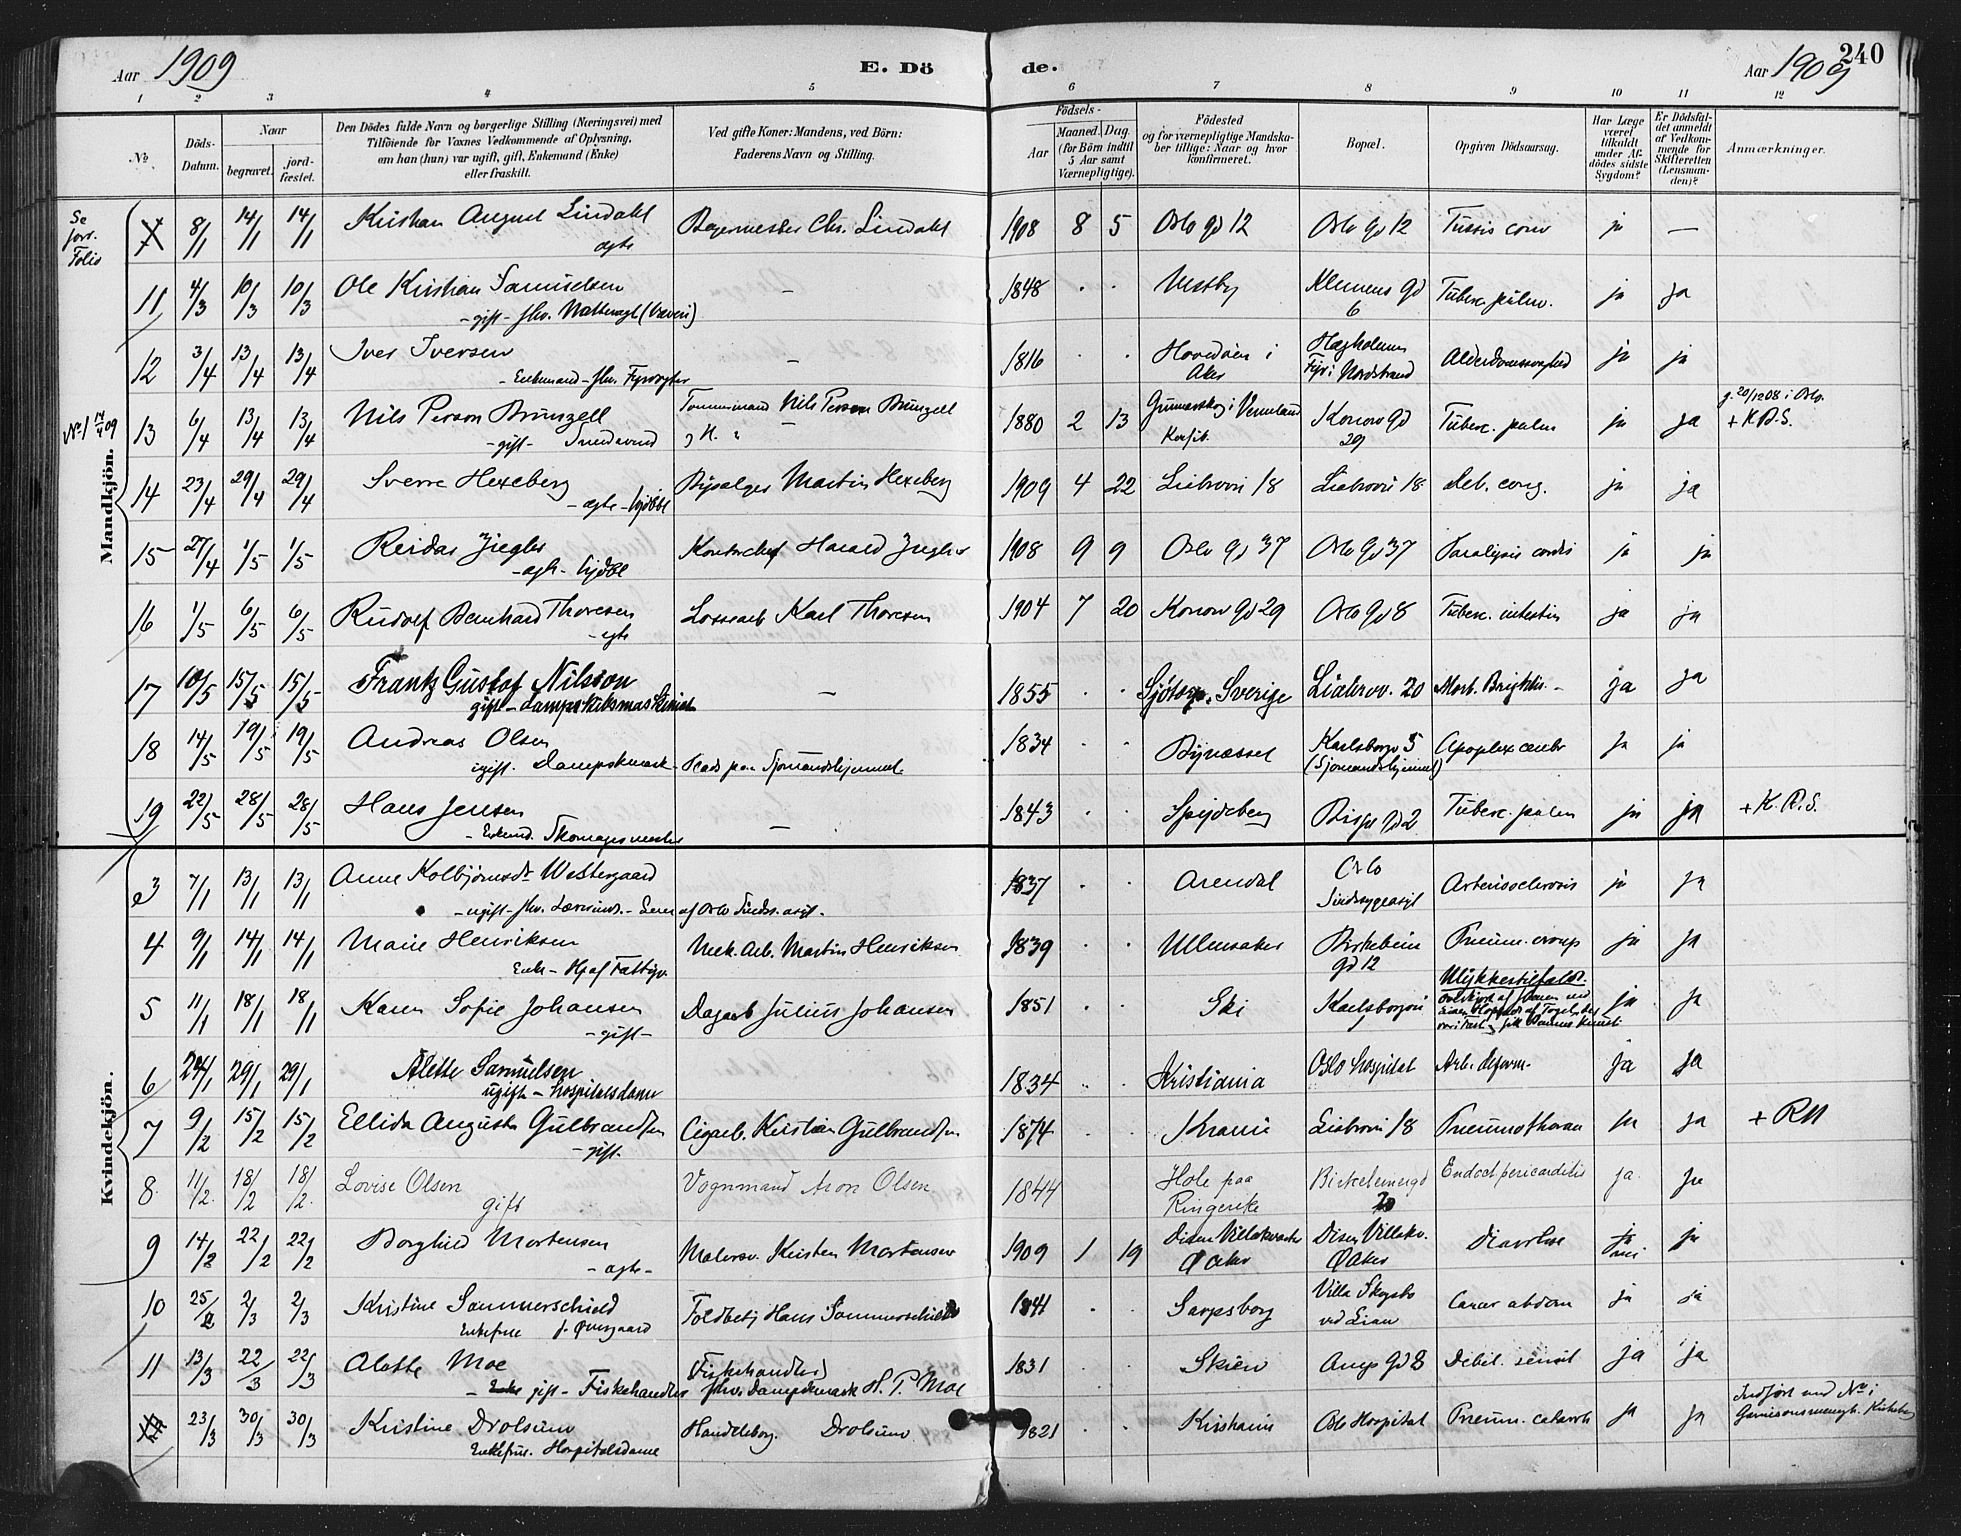 Aar 1909 E. Döde. Aar 1909 240
1 2 3 4 5 6 7 8 9 10 11 12
No. Döds-Datum. Naar begravet. jordfæstet. Den Dödes fulde Navn og borgerlige Stilling (Næringsvei) med Tilföiende for Voxnes Vedkommende af Oplysning, om han (hun) var ugift, gift, Enkemand (Enke) eller fraskilt. Ved gifte Koner: Mandens, ved Börn: Faderens Navn og Stilling. Födsels- Aar Maaned. Dag. (for Börn indtil 5 Aar samt Værnepligtige). Födested og for værnepligtige Mandskaber tillige: Naar og hvor konfirmeret. Bopæl. Opgiven Dödsaarsag. Har Læge været tilkaldt under Afdödes sidste Sygdom? Er Dödsfaldet anmeldt af Vedkommende for Skifteretten (Lensmanden)? Anmærkninger.
Mandkjön.
Se fort. Folio
8/1 14/1 14/1 Kristian August Lindahl Bagermester Chr. Lindahl 1908 8 5 Oslo gd 12 Oslo gd 12 Tussis conv ja —
ægte
11 4/3 10/3 10/3 Ole Kristian Samuelsen — 1848 . . Vestby Klemens gd 6 Tuberc. pulm. ja ja
- gift - fhv. Nattevagt (Væveri)
12 3/4 13/4 13/4 Iver Iversen — 1816 . . Hovedøen i Aker Hægholmen Fyr i Nordstrand Alderdomssvaghed ja ja
- Enkemand - fhv. Fyrvogter
No 1 14/4 09
13 6/4 13/4 13/4 Nils Person Brunzell Tømmermand Nils Person Brunzell 1880 2 13 Gunnarskog i Vermland Konow gd 29 Tuberc. pulm ja ja g. 20/12 08 i Oslo. + K.D.S.
- gift -
14 23/4 29/4 29/4 Sverre Hexeberg Bypalger Martin Hexeberg 1909 4 22 Liabrovn 18 Liabrovn 18 deb. cong. ja ja
- ægte - hjdøbt
15 27/4 1/5 1/5 Reidar Ziegler Kontorchef Harald Ziegler 1908 9 9 Oslo gd 37 Oslo gd 37 Paralysis cordis ja ja
- ægte - hjdøbt
16 1/5 6/5 6/5 Rudolf Bernhard Thoresen Lossearb Karl Thoresen 1904 7 20 Konow gd 29 Oslo gd 8 Tuberc. intestin ja ja
- ægte
17 10/5 15/5 15/5 Frantz Gustaf Nilsson — 1855 . . Sjötorp. Sverige Liabrov. 20 Morb. Brightii. - ja ja
gift - Dampskibsmaskinist
18 14/5 19/5 19/5 Andreas Olsen 1834 . . Bynæsset Karlsborgv 5 (Sjømandshjemmet) Apoplex cerebr ja ja
ugift. Dampskmask - Plads paa Sjømandshjemmet
19 22/5 28/5 28/5 Hans Jensen — 1843 . . Spydeberg Bispe gd 2 Tuberc. pulm ja ja + K.D.S.
- Enkemd. Skomagermester
Kvindekjön.
3 7/1 13/1 13/1 Anne Kolbjørnsdr Westergaard 1837 . . Arendal Oslo Sindssygeasyl Arteriosclerosis ja ja
- ugift - fhv. Lærerinde. - Lem af Oslo Sindss. asyl.
4 9/1 14/1 14/1 Marie Henriksen Mek. Arb. Martin Henriksen 1839 . . Ullensaker Birkebein gd 12 Pneum. croup ja ja
Enke - Hj af Fattigv.
5 11/1 18/1 18/1 Karen Sofie Johansen Dagarb Julius Johansen 1851 . . Ski Karlsborgvn Ulykkestilfælde. ja ja
- gift -
6 24/1 29/1 29/1 Alette Samuelsen 1834 . . Kristiania Oslo Hospital Arb. deform. ja ja
ugift - hospitalsdame
7 9/2 15/2 15/2 Ellida Augusta Gulbrandsen Cigarb. Kristian Gulbrandsen 1874 . . Kirania Liabrovn 18 Pneumothorax ja ja + RM
- gift.
8 11/2 18/2 18/2. Lovise Olsen Vognmand Aron Olsen 1844 Hole paa Ringerike Birkebeinergd 20 Endoet pericarditis ja. ja
gift
9 14/2 22/2 22/2 Borghild Mortensen Malersv. Kristen Mortensen 1909 1 19 Disen Villakvarter Ø Aker Disen Villakv. Ø Aker Diarrhoe ja
- ægte -
10 25/2 2/3 2/3 Kristine Sommerschield Toldbetj Hans Sommerschield 1841 . . Sarpsborg Villa Skogsbo ved Lian Cancer abdom ja ja
Enkefrue f. Øvergaard
11 13/3 22/3 22/3 Alette Moe Fiskehandler, fhv. Dampskmask H. P. Moe 1831 . . Skien Arups gd 8 Debil. senil ja ja
- Enke gift - Fiskehandler
23/3 30/3 30/3 Kristine Drolsum Handelsborg. Drolsum 1821 . . Kristiania Oslo Hospital Pneum. catarrh ja ja Indført med No i Garnisonsmenigh. Kirkebog
Enkefrue. Hospitalsdame